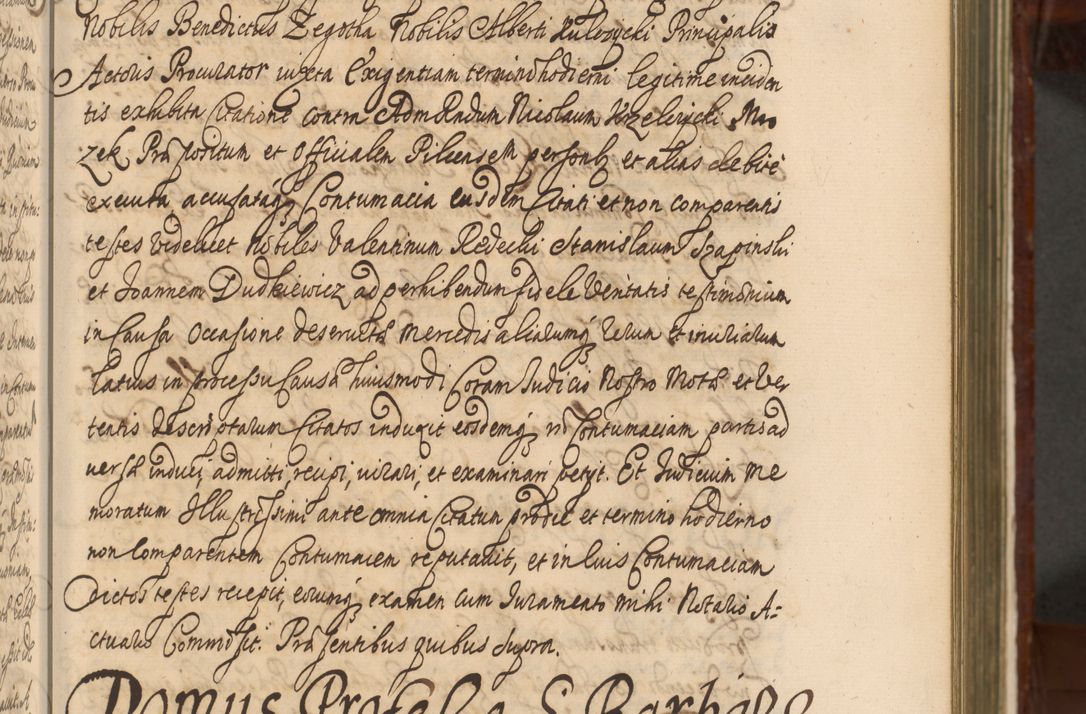 Nobilis Benedictus Zegotha Nobilis Alberti Kulczycki Principalis
Actoris Procurator iuxta Exigentiam termini hodierni legitime inciden
tis exhibita Citatione contra AdmRndum Nicolaum Krzelezycki Mro
zek Præpositum et Officialem Pilcensem personlr et alias debite
executa, accusatáq Contumacia eiusdem Citati et non comparentis
testes videlicet Nobiles Valentinum Redecki Stanislaum Szapinski
et Joannem Dudkiewicz ad perhibendum fidele veritatis testimonium
in Causa occasione deservitæ mercedis aliarumq rerum et iniuriarum
latius in processu Causæ huiusmodi Coram Judicio Nostro Motæ et Ver
tentis descriptarum Citatos induxit eosdemq in Contumaciam partis ad
versæ induci, admitti, recipi, iurari, et examinari petijt. Et Judicium me
moratum Illustrissimi ante omnia Citatum prodie et termino hodierno
non Comparentem Contumacem reputavit, et in eius Contumaciam
dictos testes recepit, eorumq examen cum Juramento mihi Notario A-
ctuario Commisit. Præsentibus quibus supra.
Domus Professa S. Barbaræ